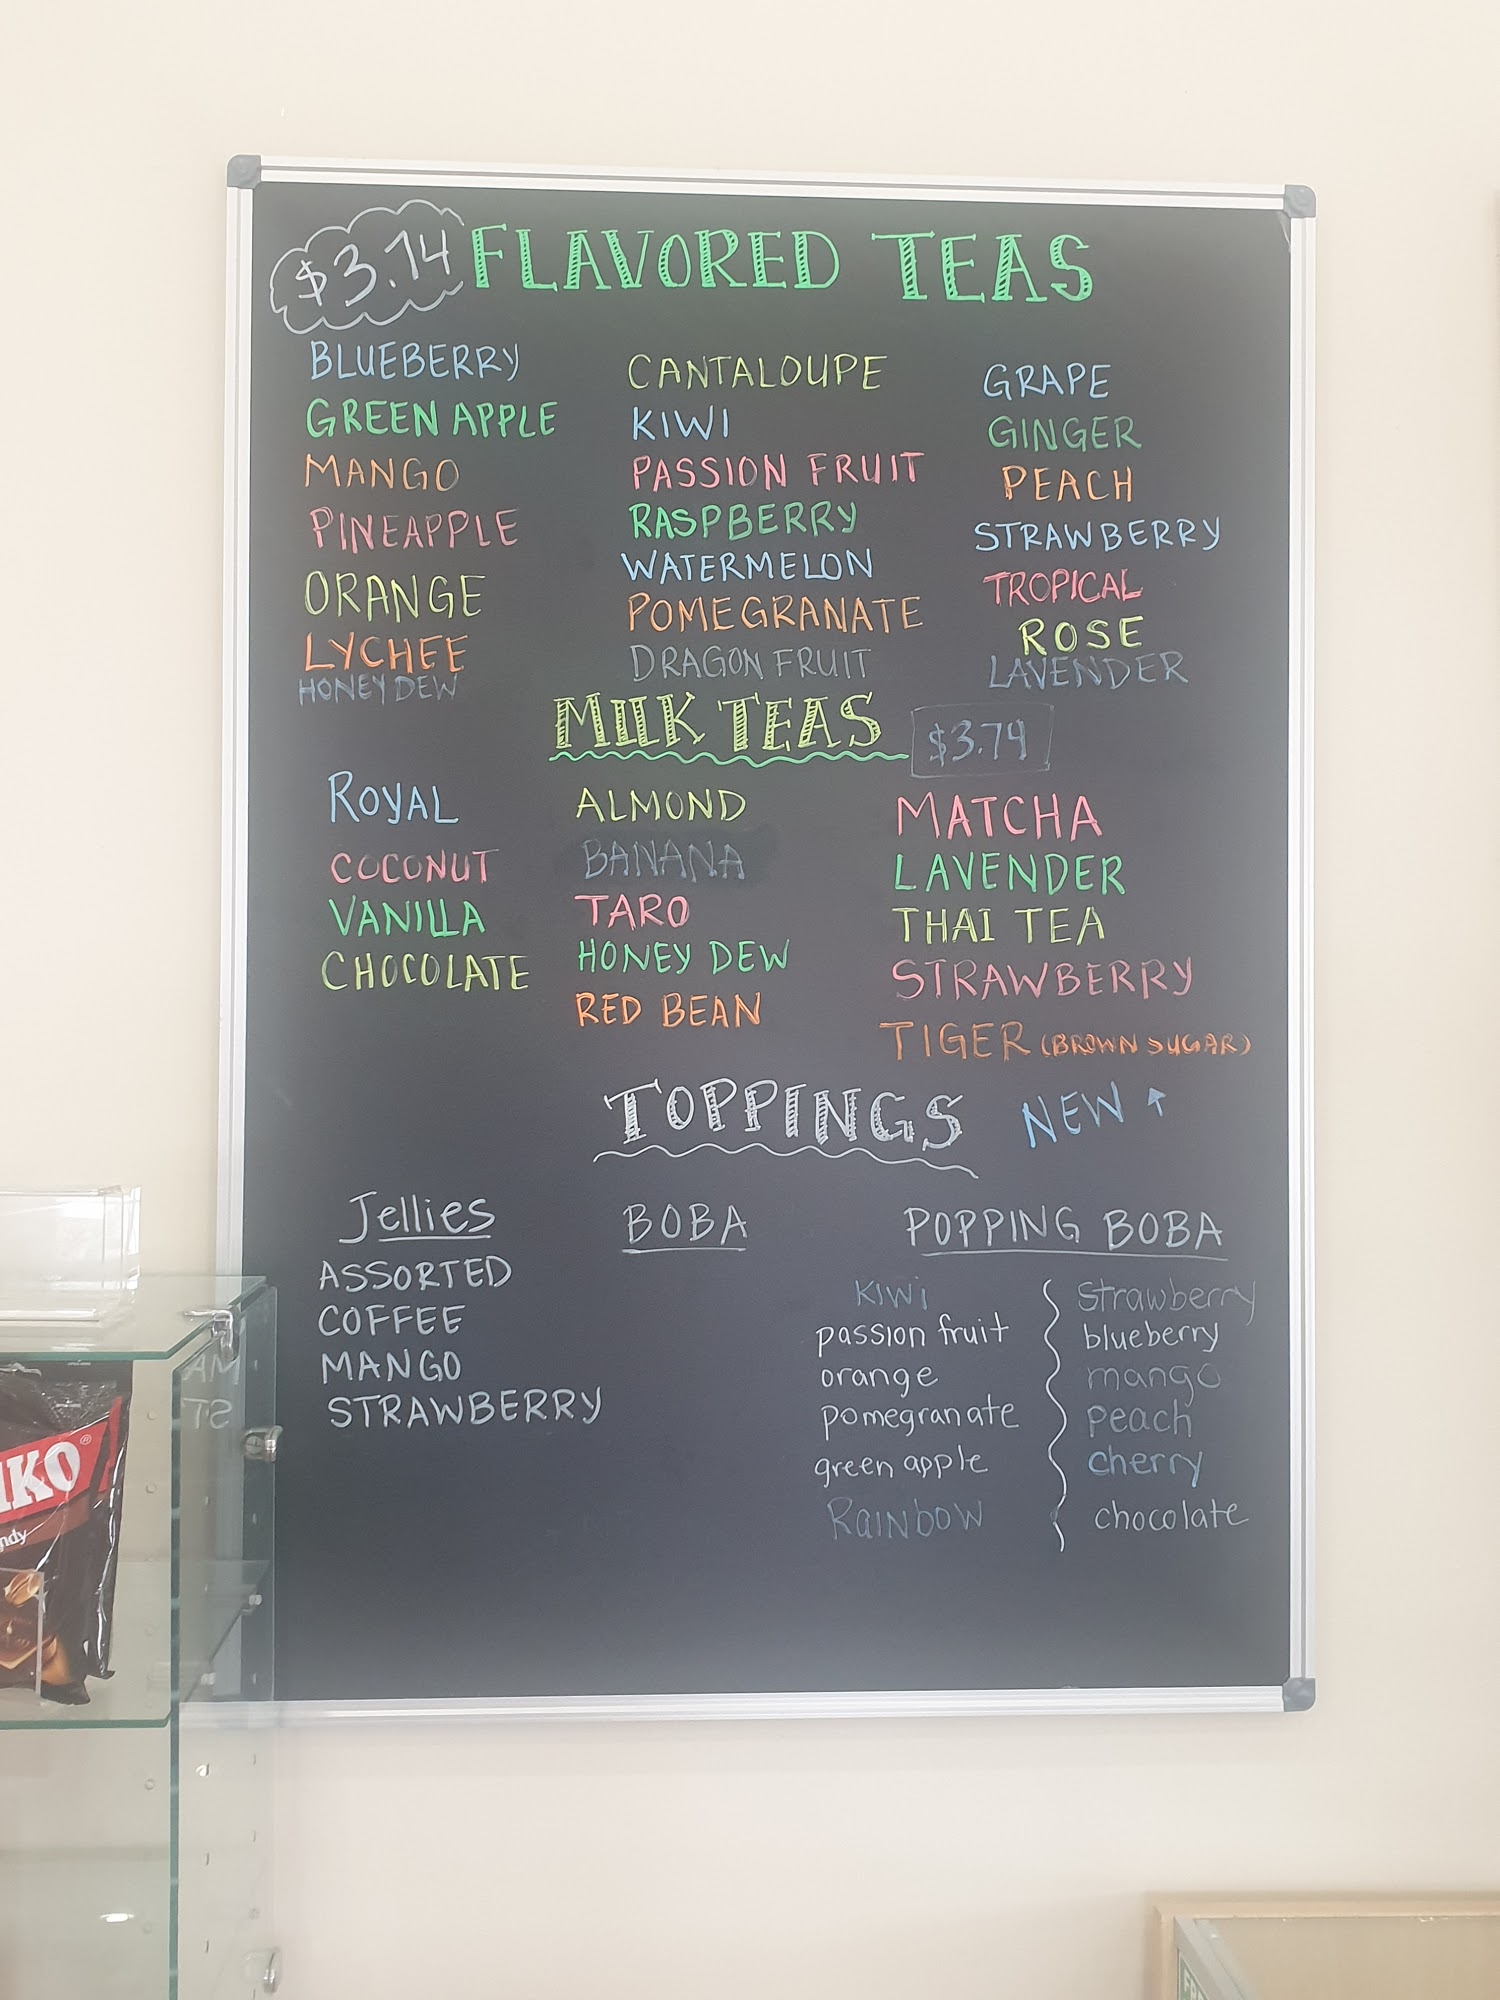 $3.74 FLAVORED TEAS
BLUEBERRY
GREEN APPLE
MANGO
PINEAPPLE
ORANGE
LYCHEE
HONEY DEW
CANTALOUPE
KIWI
PASSION FRUIT
RASPBERRY
WATERMELON
POMEGRANATE
DRAGON FRUIT
GRAPE
GINGER
PEACH
STRAWBERRY
TROPICAL
ROSE
LAVENDER
MILK TEAS $3.74
ROYAL
COCONUT
VANILLA
CHOCOLATE
ALMOND
BANANA
TARO
HONEY DEW
RED BEAN
MATCHA
LAVENDER
THAI TEA
STRAWBERRY
TIGER (BROWN SUGAR)
NEW
TOPPINGS
Jellies
ASSORTED
COFFEE
MANGO
STRAWBERRY
BOBA
POPPING BOBA
KIWI
passion fruit
orange
pomegranate
green apple
Rainbow
Strawberry
blueberry
mango
peach
cherry
chocolate